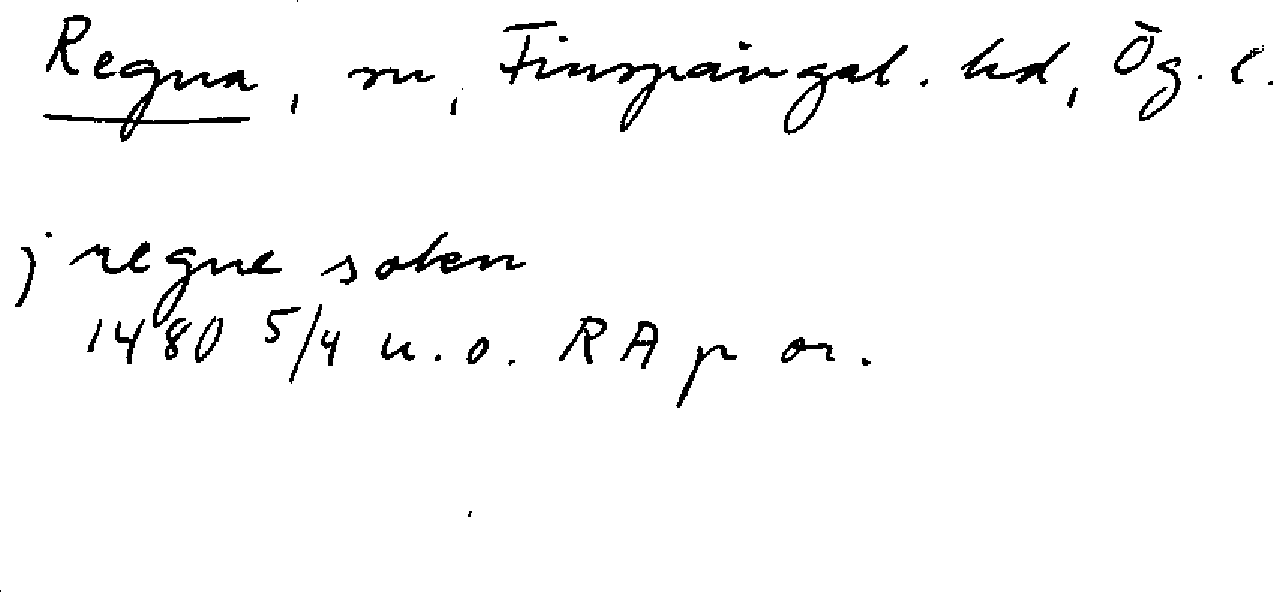 Regna, sn, Finspångal. hd, Ög. l.
j regne soken
1480 5/4 u. o. RA p or.